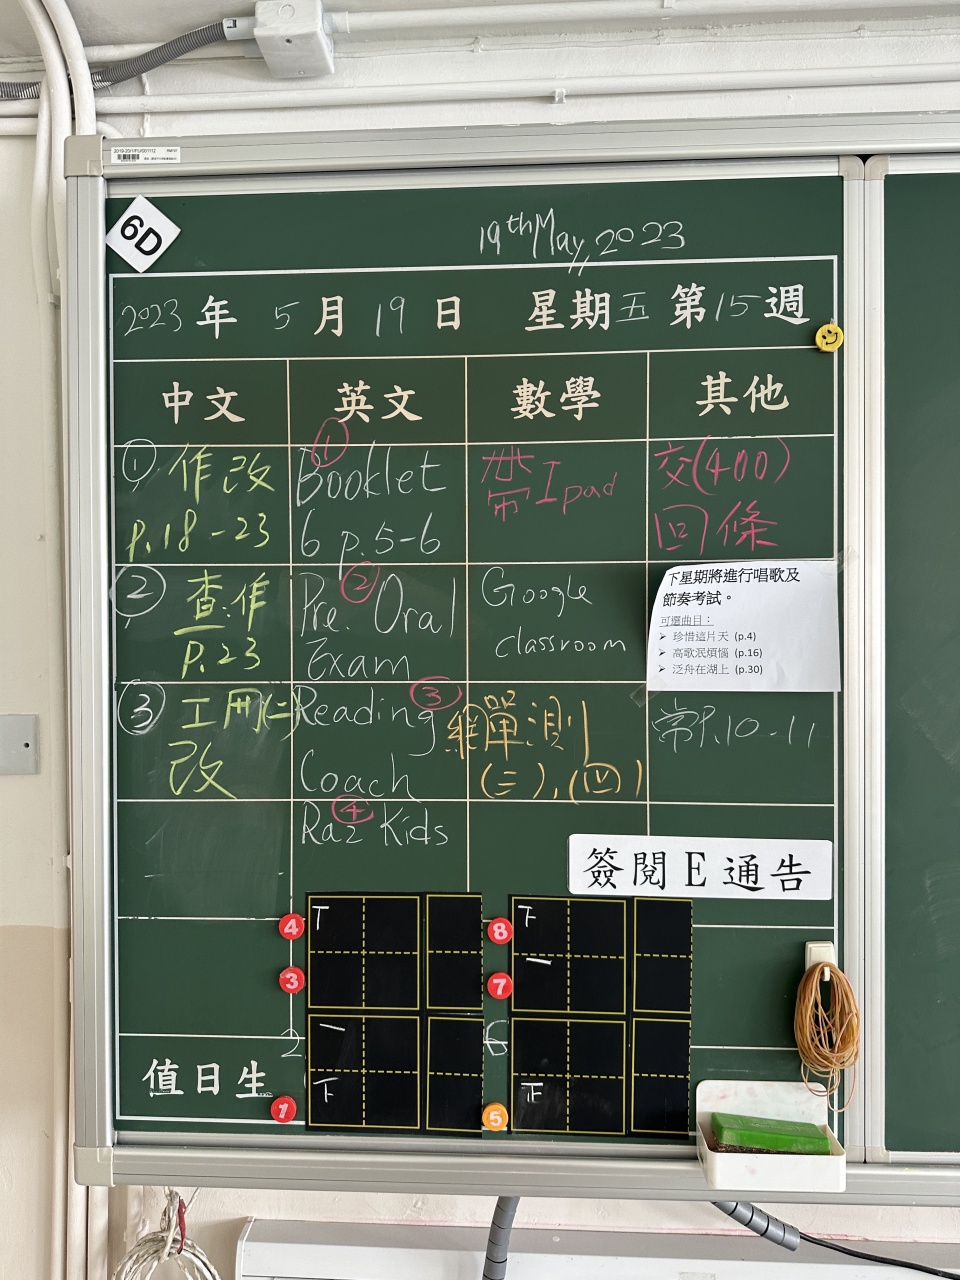 2019-20/1/FU/001112
6D
19th May, 2023
2023 年 5 月 19 日 星期五 第15週
中文 英文 數學 其他
① 作改
P.18-23
② 查:作
P.23
③ 工冊(二)
改
① Booklet
6 p.5-6
② Pre. Oral
Exam
③ Reading
Coach
④ Raz Kids
帶Ipad
Google
classroom
網單測
(三),(四)
交(400)
回條
下星期將進行唱歌及
節奏考試。
可選曲目:
➢ 珍惜這片天 (p.4)
➢ 高歌泯煩惱 (p.16)
➢ 泛舟在湖上 (p.30)
常P.10-11
簽閱E通告
4 8
3 7
2 6
值日生
1 5